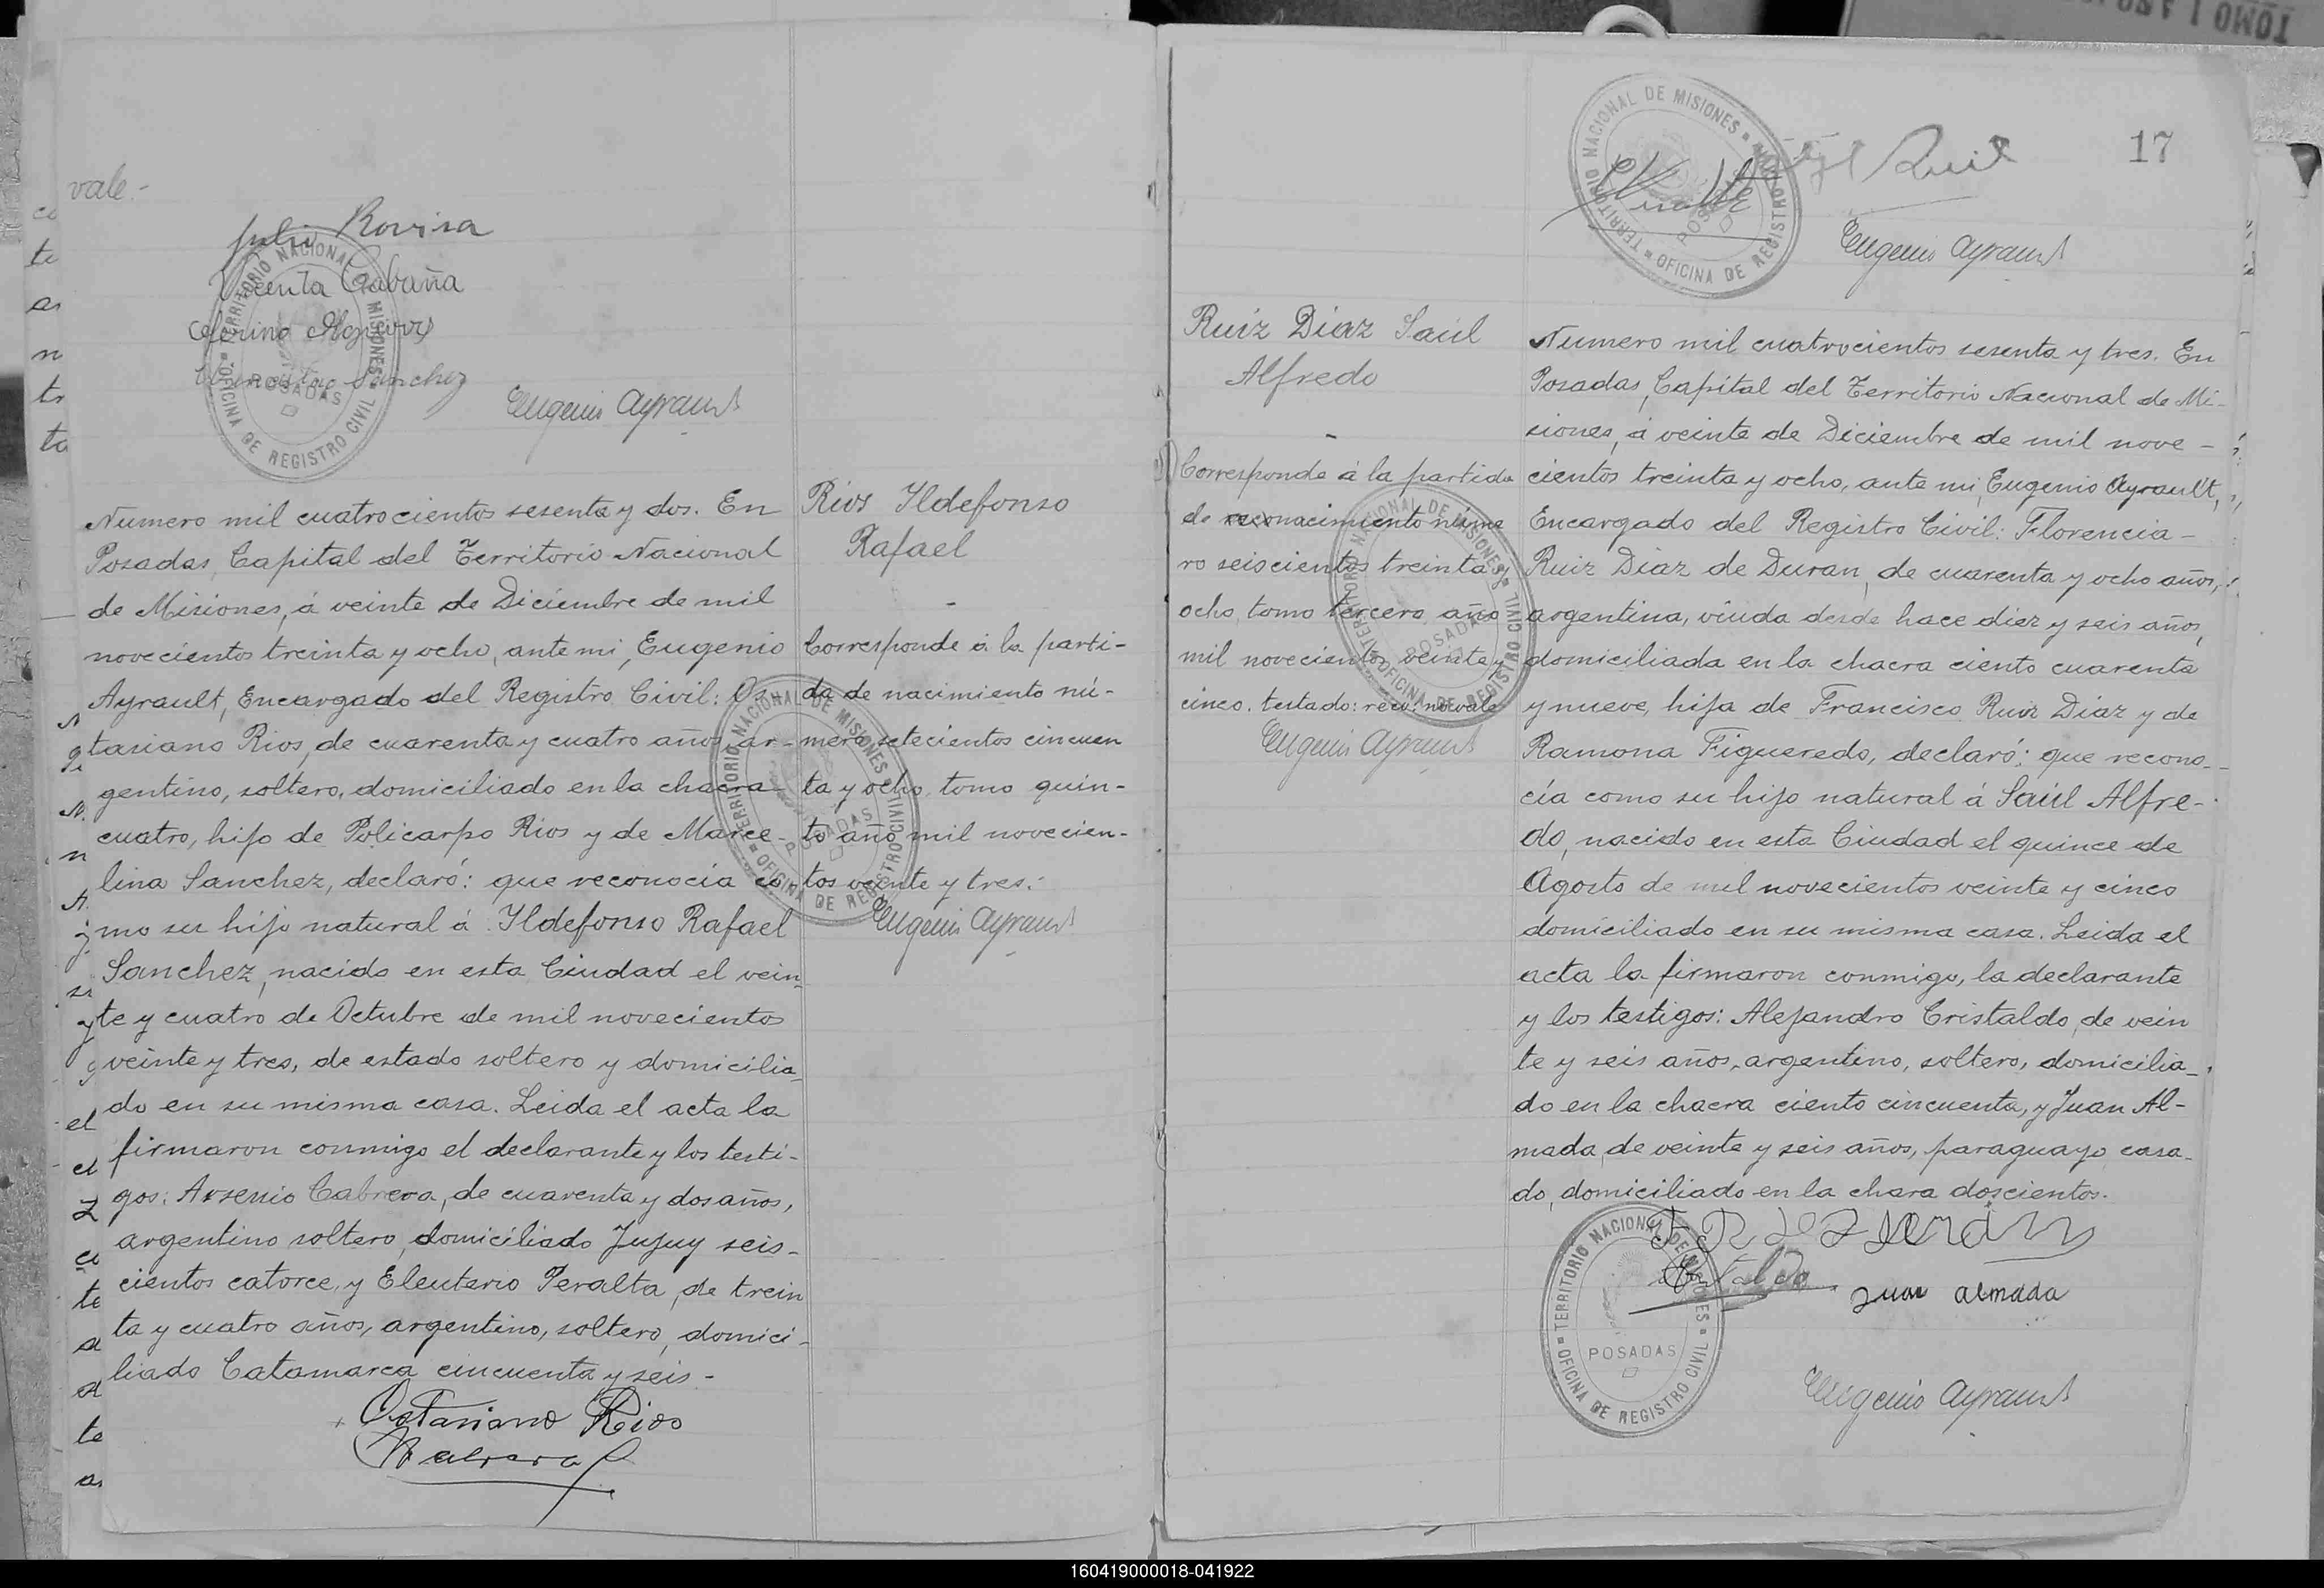 TOMO I AÑO
vale.-
Julio Rovira
Vicenta Cabaña
Ceferino
Sanchez
Eugenio Ayrault
TERRITORIO NACIONAL DE MISIONES
OFICINA DE REGISTRO CIVIL
POSADAS
Numero mil cuatrocientos sesenta y dos. En
Posadas, Capital del Territorio Nacional
de Misiones, á veinte de Diciembre de mil
novecientos treinta y ocho, ante mi, Eugenio
Ayrault, Encargado del Registro Civil: Os-
tasiano Rios, de cuarenta y cuatro años, ar-
gentino, soltero, domiciliado en la chacra
cuatro, hijo de Policarpo Rios y de Marce-
lina Sanchez, declaró: que reconocía co
mo su hijo natural á Ildefonso Rafael
Sanchez, nacido en esta Ciudad el vein
te y cuatro de Octubre de mil novecientos
veinte y tres, de estado soltero y domicilia-
do en su misma casa. Leida el acta la
firmaron conmigo el declarante y los testi-
gos: Arsenio Cabrera, de cuarenta y dos años,
argentino soltero, domiciliado Jujuy seis-
cientos catorce, y Eleuterio Peralta, de trein
ta y cuatro años, argentino, soltero, domici-
liado Catamarca cincuenta y seis -
Ostasiano Rios
Cabrera
Rios Ildefonso
Rafael
-
Corresponde á la parti-
da de nacimiento nú-
mero setecientos cincuen
ta y ocho, tomo quin-
to año mil novecien-
tos veinte y tres.-
Eugenio Ayrault
TERRITORIO NACIONAL DE MISIONES
OFICINA DE REGISTRO CIVIL
POSADAS
17
TERRITORIO NACIONAL DE MISIONES
OFICINA DE REGISTRO CIVIL
POSADAS
Eugenio Ayrault
Ruiz Diaz Saúl
Alfredo
-
Corresponde á la partida
de reconacimiento núme
ro seiscientos treinta y
ocho, tomo tercero, año
mil novecientos veinte y
cinco. testado: reco: no vale
Eugenio Ayrault
TERRITORIO NACIONAL DE MISIONES
OFICINA DE REGISTRO CIVIL
POSADAS
Numero mil cuatrocientos sesenta y tres. En
Posadas, Capital del Territorio Nacional de Mi-
siones, á veinte de Diciembre de mil nove-
cientos treinta y ocho, ante mi, Eugenio Ayrault,
Encargado del Registro Civil: Florencia-
Ruiz Diaz de Duran, de cuarenta y ocho años,
argentina, viuda desde hace diez y seis años,
domiciliada en la chacra ciento cuarenta
y nueve, hija de Francisco Ruiz Diaz y de
Ramona Figueredo, declaró: que recono-
cía como su hijo natural á Saúl Alfre-
do, nacido en esta Ciudad el quince de
Agosto de mil novecientos veinte y cinco
domiciliado en su misma casa. Leida el
acta la firmaron conmigo, la declarante
y los testigos: Alejandro Cristaldo, de vein
te y seis años, argentino, soltero, domicilia-
do en la chacra ciento cincuenta, y Juan Al-
mada, de veinte y seis años, paraguayo, casa-
do, domiciliado en la chara doscientos.
Juan almada
Eugenio Ayrault
TERRITORIO NACIONAL DE MISIONES
OFICINA DE REGISTRO CIVIL
POSADAS
160419000018-041922